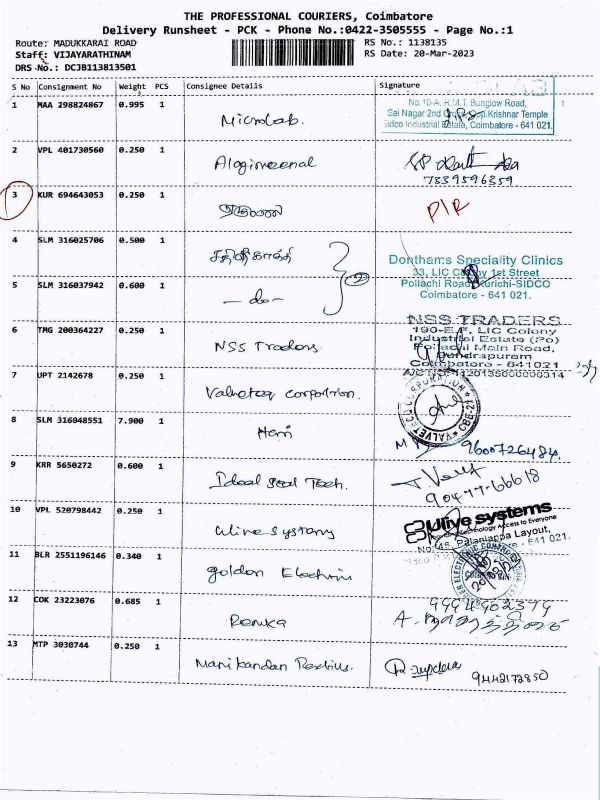 THE PROFESSIONAL COURIERS, Coimbatore
Delivery Runsheet - PCK - Phone No.:0422-3505555 - Page No.:1
Route: MADUKKARAI ROAD
Staff: VIJAYARATHINAM
DRS No.: DCJB113813501
RS No.: 1138135
RS Date: 20-Mar-2023
S No Consignment No Weight PCS Consignee Details Signature
1 MAA 298824867 0.995 1 Microlab.
No.10-A, H.M.T. Bunglow Road,
Sai Nagar 2nd Cross, Opp.Krishnar Temple
Sidco Industrial Estate, Coimbatore - 641 021.
2 VPL 401730560 0.250 1
7539596359
3 KUR 694643053 0.250 1
4 SLM 316025706 0.500 1 சக்திகாந்தி
2
Donthams Speciality Clinics
33, LIC Colony 1st Street
Pollachi Road, Kurichi-SIDCO
Coimbatore - 641 021.
5 SLM 316037942 0.600 1 - do -
6 TMG 200364227 0.250 1 NSS Traders
NSS TRADERS
190-E.F, LIC Colony
Industrial Estate (Po)
Pollachi Main Road,
Sundrapuram
Coimbatore - 641021
7 UPT 2142678 0.250 1 Valveteq corporation.
VALVETEQ CORPORATION
CBE-21
8 SLM 316048551 7.900 1 Hari
9600726484.
9 KRR 5650272 0.600 1 Ideal Seal Tech.
90477-66618
10 VPL 520798442 0.250 1 Ulive systems
Ulive systems
Technology Access to Everyone
No: 45, Palaniappa Layout,
11 BLR 2551196146 0.340 1 golden Electronics
12 COK 23223076 0.685 1 Renuka
9994402394
13 MTP 3030744 0.250 1 Manikandan Textiles.
9442172850